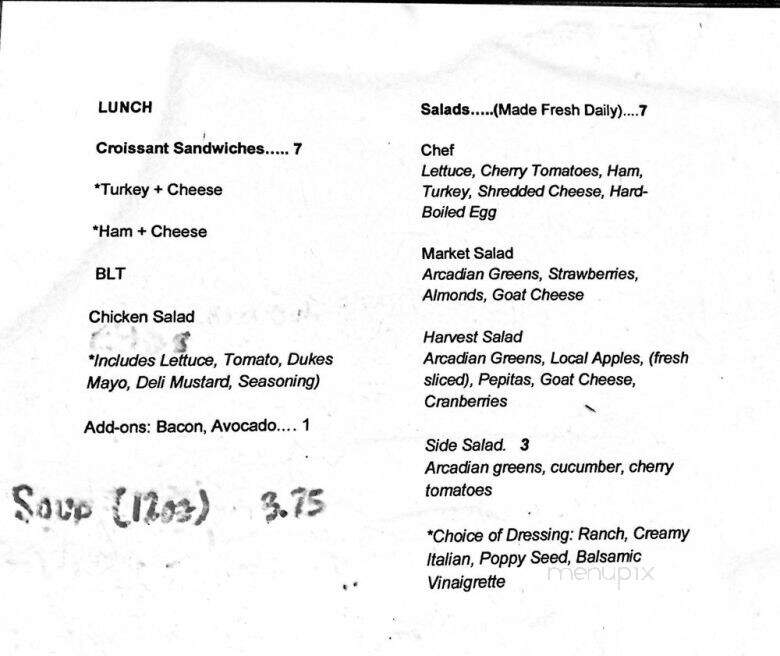 LUNCH
Croissant Sandwiches..... 7
*Turkey + Cheese
*Ham + Cheese
BLT
Chicken Salad
*Includes Lettuce, Tomato, Dukes
Mayo, Deli Mustard, Seasoning)
Add-ons: Bacon, Avocado.... 1
Soup (12oz) 3.75
Salads.....(Made Fresh Daily)....7
Chef
Lettuce, Cherry Tomatoes, Ham,
Turkey, Shredded Cheese, Hard-
Boiled Egg
Market Salad
Arcadian Greens, Strawberries,
Almonds, Goat Cheese
Harvest Salad
Arcadian Greens, Local Apples, (fresh
sliced), Pepitas, Goat Cheese,
Cranberries
Side Salad. 3
Arcadian greens, cucumber, cherry
tomatoes
*Choice of Dressing: Ranch, Creamy
Italian, Poppy Seed, Balsamic
Vinaigrette
menupix